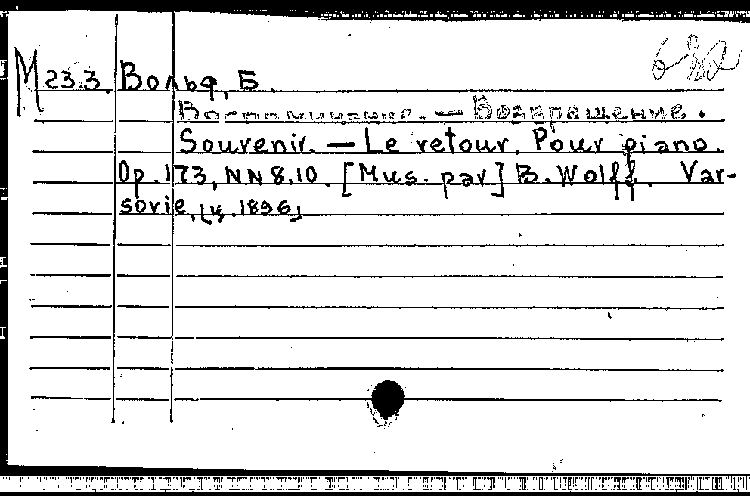 M 23.3. Вольф, Б.
Воспоминание. — Возвращение.
Souvenir. — Le retour. Pour piano.
Op. 173, NN 8,10. [Mus. par] B. Wolff. Var-
sovie, [ц. 1896]